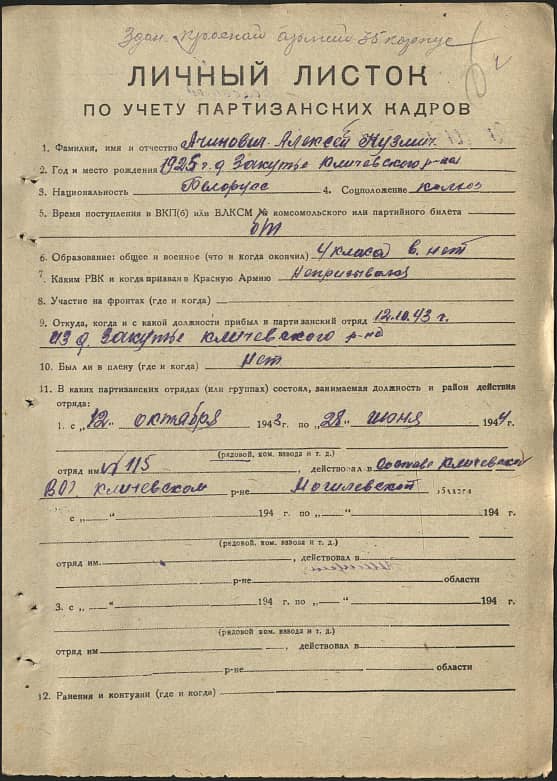 Здан красной армии 35 корпус
ЛИЧНЫЙ ЛИСТОК
ПО УЧЕТУ ПАРТИЗАНСКИХ КАДРОВ
1. Фамилия, имя и отчество Ачинович Алексей Кузмич
2. Год и место рождения 1925 г. д Закутье Кличевского р-на
3. Национальность Белорусс 4. Соцположение колхоз
5. Время поступления в ВКП(б) или ВЛКСМ № комсомольского или партийного билета
б/п
6. Образование: общее и военное (что и когда окончил) 4 класа в. нет
7. Каким РВК и когда призван в Красную Армию Непризывался
8. Участие на фронтах (где и когда)
9. Откуда, когда и с какой должности прибыл в партизанский отряд 12.10.43 г.
из д. Закутье Кличевского р-на
10. Был ли в плену (где и когда) Нет
11. В каких партизанских отрядах (или группах) состоял, занимаемая должность и район действия
отряда:
1. с „12“ октября 1943 г. по „28“ июня 1944 г.
(рядовой, ком. взвода и т. д.)
отряд им № 115, действовал в Составе Кличевской
ВОГ Кличевском р-не Могилевской области
с „ “ 194 г. по „ “ 194 г.
(рядовой, ком. взвода и т. д.)
отряд им. , действовал в
р-не области
3. с „ “ 194 г. по „ “ 194 г.
(рядовой ком. взвода и т. д.)
отряд им , действовал в
р-не области
12. Ранения и контузии (где и когда)